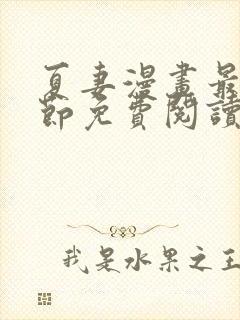 夏妻漫畫最
節免費閱讀
我是水果之王